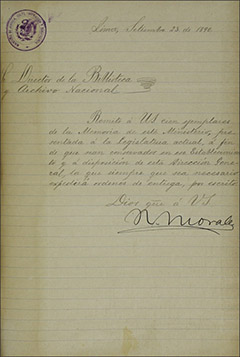 Lima, Setiembre 23 de 1890.
Director de la Biblioteca
y Archivo Nacional
Remito á US cien ejemplares
de la Memoria de este Ministerio, pre-
sentada á la Legislatura actual, á fin
de que sean conservados en ese Establecimien-
to y á disposición de esta Dirección Gene-
ral, la que siempre que sea necesario
expedirá órdenes de entrega, por escrito.
Dios gue á US.
N. Morales